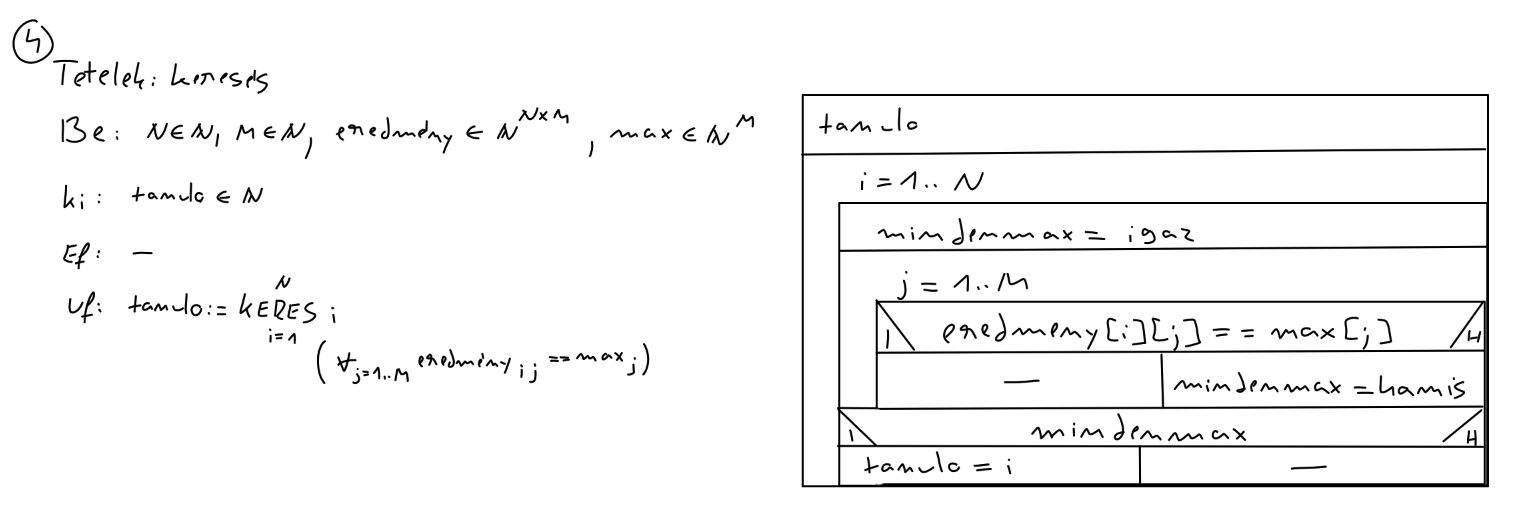 4
Tételek: keresés
Be: N∈ℕ, M∈ℕ, eredmény ∈ ℕ^N×M, max ∈ ℕ^M
ki: tanulo ∈ ℕ
Ef: —
Uf: tanulo:= KERES i
N
i=1
(∀j=1..M eredmény ij == max j)
tanulo
i = 1.. N
mindenmax = igaz
j = 1..M
I eredmeny[i][j] == max[j] H
— mindenmax = hamis
I mindenmax H
tanulo = i —